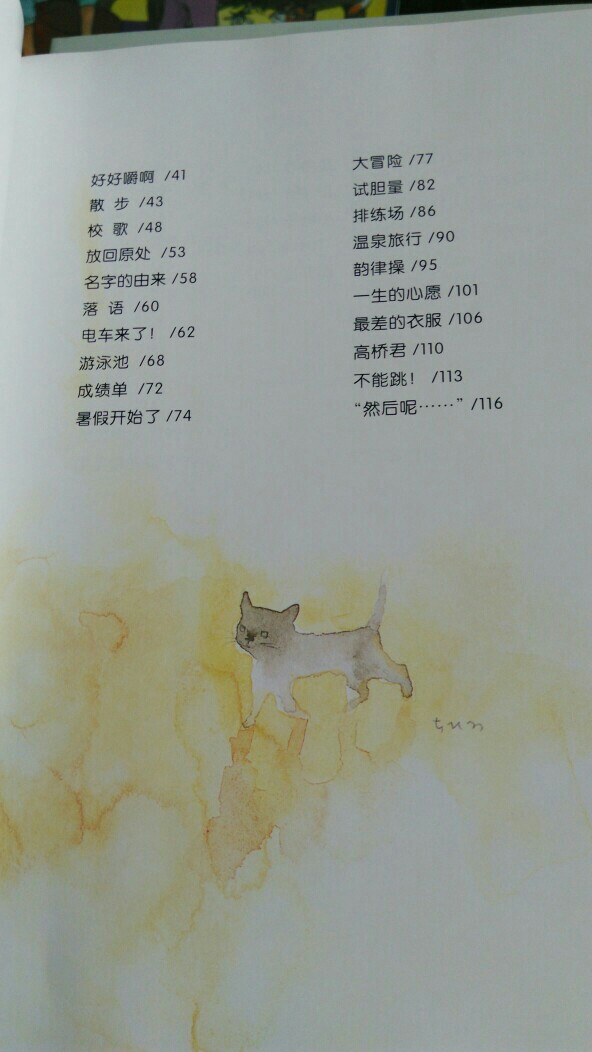 好好嚼啊 /41
散 步 /43
校 歌 /48
放回原处 /53
名字的由来 /58
落 语 /60
电车来了！ /62
游泳池 /68
成绩单 /72
暑假开始了 /74
大冒险 /77
试胆量 /82
排练场 /86
温泉旅行 /90
韵律操 /95
一生的心愿 /101
最差的衣服 /106
高桥君 /110
不能跳！ /113
“然后呢……” /116
ちひろ